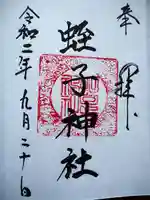 奉拝
蛭子神社
令和二年九月二十日